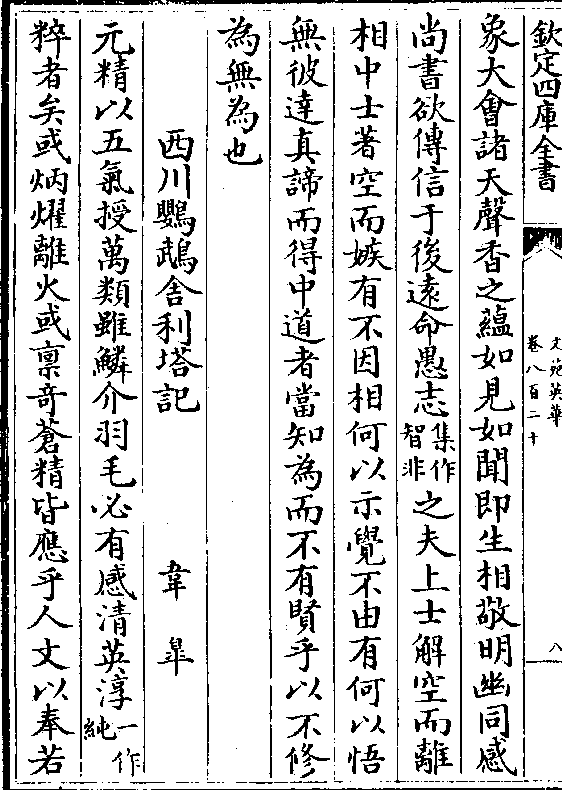 欽定四庫全書
文苑英華
卷八百二十
八
象大會諸天聲香之蘊如見如聞即生相敬明幽同感
尚書欲傳信于後遠命愚志集作智非之夫上士解空而離
相中士著空而嫉有不因相何以示覺不由有何以悟
無彼達真諦而得中道者當知為而不有賢乎以不修
為無為也
西川鸚鵡舍利塔記 韋臯
元精以五氣授萬類雖鱗介羽毛必有感清英淳一作純
粹者矣或炳燿離火或禀竒蒼精皆應乎人文以奉若